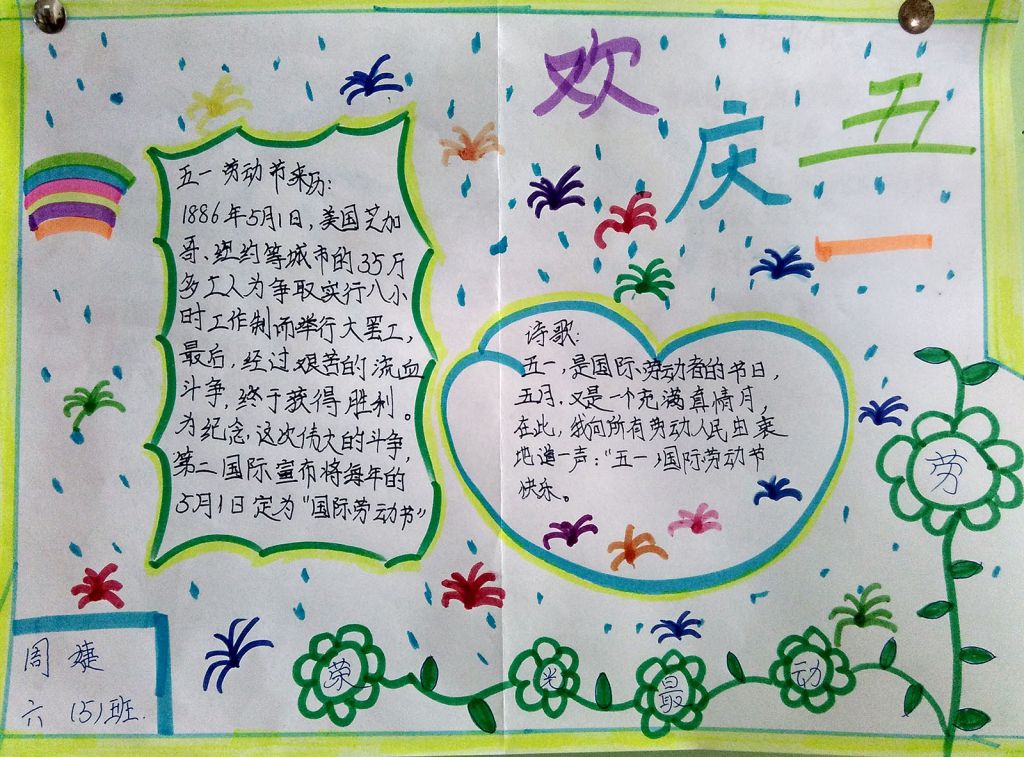 欢庆五一
五一劳动节来历:
1886年5月1日,美国芝加
哥、纽约等城市的35万
多工人为争取实行八小
时工作制而举行大罢工,
最后,经过艰苦的流血
斗争,终于获得胜利。
为纪念,这次伟大的斗争,
第二国际宣布将每年的
5月1日定为"国际劳动节"
诗歌:
五一,是国际劳动者的节日,
五月,又是一个充满真情月,
在此,我向所有劳动人民由衷
地道一声:"五一,国际劳动节
快乐。
劳
动
最
光
荣
周婕
六(5)班.